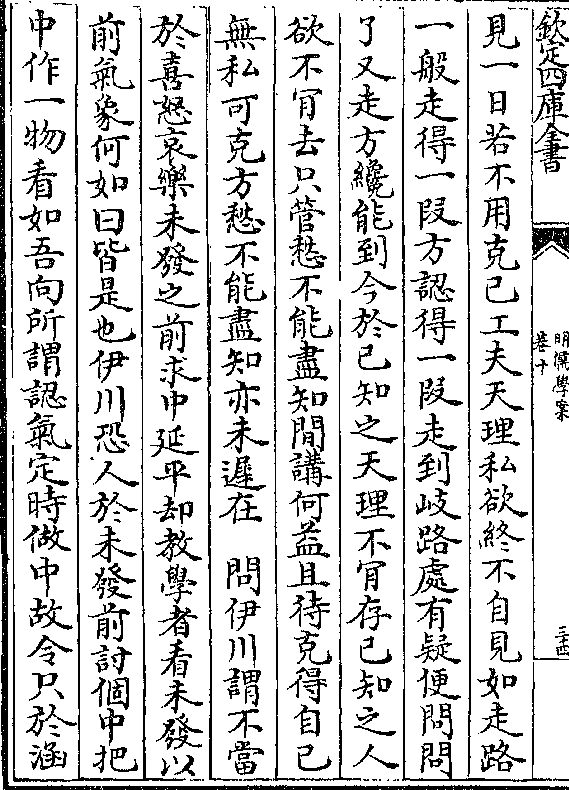 欽定四庫全書
明儒學案
卷十
三十四
見一日若不用克己工夫天理私欲終不自見如走路
一般走得一段方認得一段走到岐路處有疑便問問
了又走方纔能到今於已知之天理不肎存已知之人
欲不肎去只管愁不能盡知閒講何益且待克得自己
無私可克方愁不能盡知亦未遲在　問伊川謂不當
於喜怒哀樂未發之前求中延平却教學者看未發以
前氣象何如曰皆是也伊川恐人於未發前討個中把
中作一物看如吾向所謂認氣定時做中故令只於涵